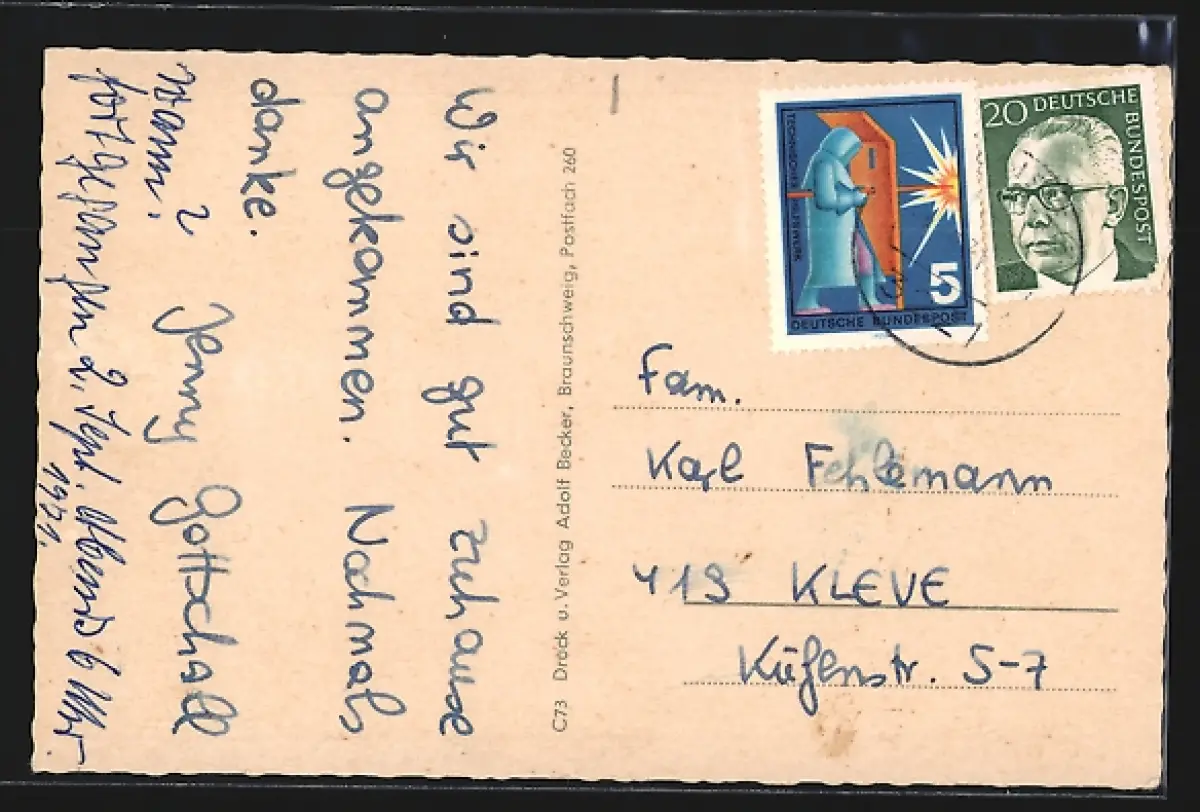 Wir sind gut zuhause
angekommen. Nochmals
danke.
Jenny Gottschall
2. Sept. Abends 6 Uhr
1971.
C73 Dröck u. Verlag Adolf Becker, Braunschweig, Postfach 260
TECHNISCHES HILFSWERK
5
DEUTSCHE BUNDESPOST
20 DEUTSCHE
BUNDESPOST
Fam.
Karl Fehlemann
419 KLEVE
Kühlnstr. 5-7